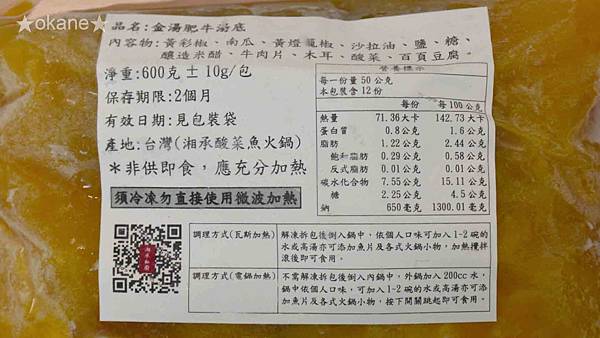 ★okane★
品名:金湯肥牛湯底
內容物:黃彩椒、南瓜、黃燈籠椒、沙拉油、鹽、糖、
釀造米醋、牛肉片、木耳、酸菜、百頁豆腐。
淨重:600克 ± 10g/包
保存期限:2個月
有效日期:見包裝袋
產地:台灣(湘承酸菜魚火鍋)
*非供即食,應充分加熱
須冷凍勿直接使用微波加熱
營養標示
每一份量 50 公克
本包裝含 12份
每份 每 100 公克
熱量 71.36 大卡 142.73 大卡
蛋白質 0.8 公克 1.6 公克
脂肪 1.22 公克 2.44 公克
飽和脂肪 0.29 公克 0.58 公克
反式脂肪 0.01 公克 0.01 公克
碳水化合物 7.55 公克 15.11 公克
糖 2.25 公克 4.5 公克
鈉 650 毫克 1300.01 毫克
調理方式(瓦斯加熱)
解凍拆包後倒入鍋中,依個人口味可加入 1-2 碗的
水或高湯亦可添加魚片及各式火鍋小物,加熱攪拌
滾後即可食用。
調理方式(電鍋加熱)
不需解凍拆包後倒入內鍋中,外鍋加入 200cc 水,
鍋中依個人口味,可加入 1-2 碗的水或高湯亦可添
加魚片及各式火鍋小物,按下開關跳起即可食用。